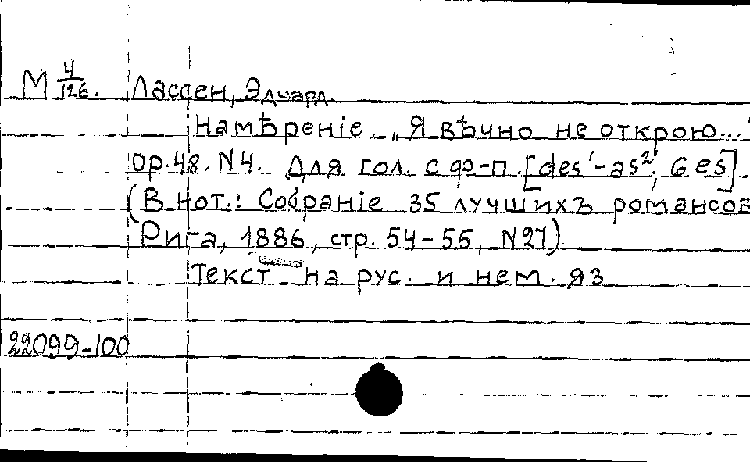 М 4/126. Лассен, Эдуард.
Намѣреніе. „Я вѣчно не открою..."
op. 48. N4. Для гол. с ф-п. [des¹-as²; Ges].
(В нот.: Собраніе 35 лучшихъ романсов
Рига, 1886, стр. 54-55, N27)
Текст на рус. и нем. яз
22099-100